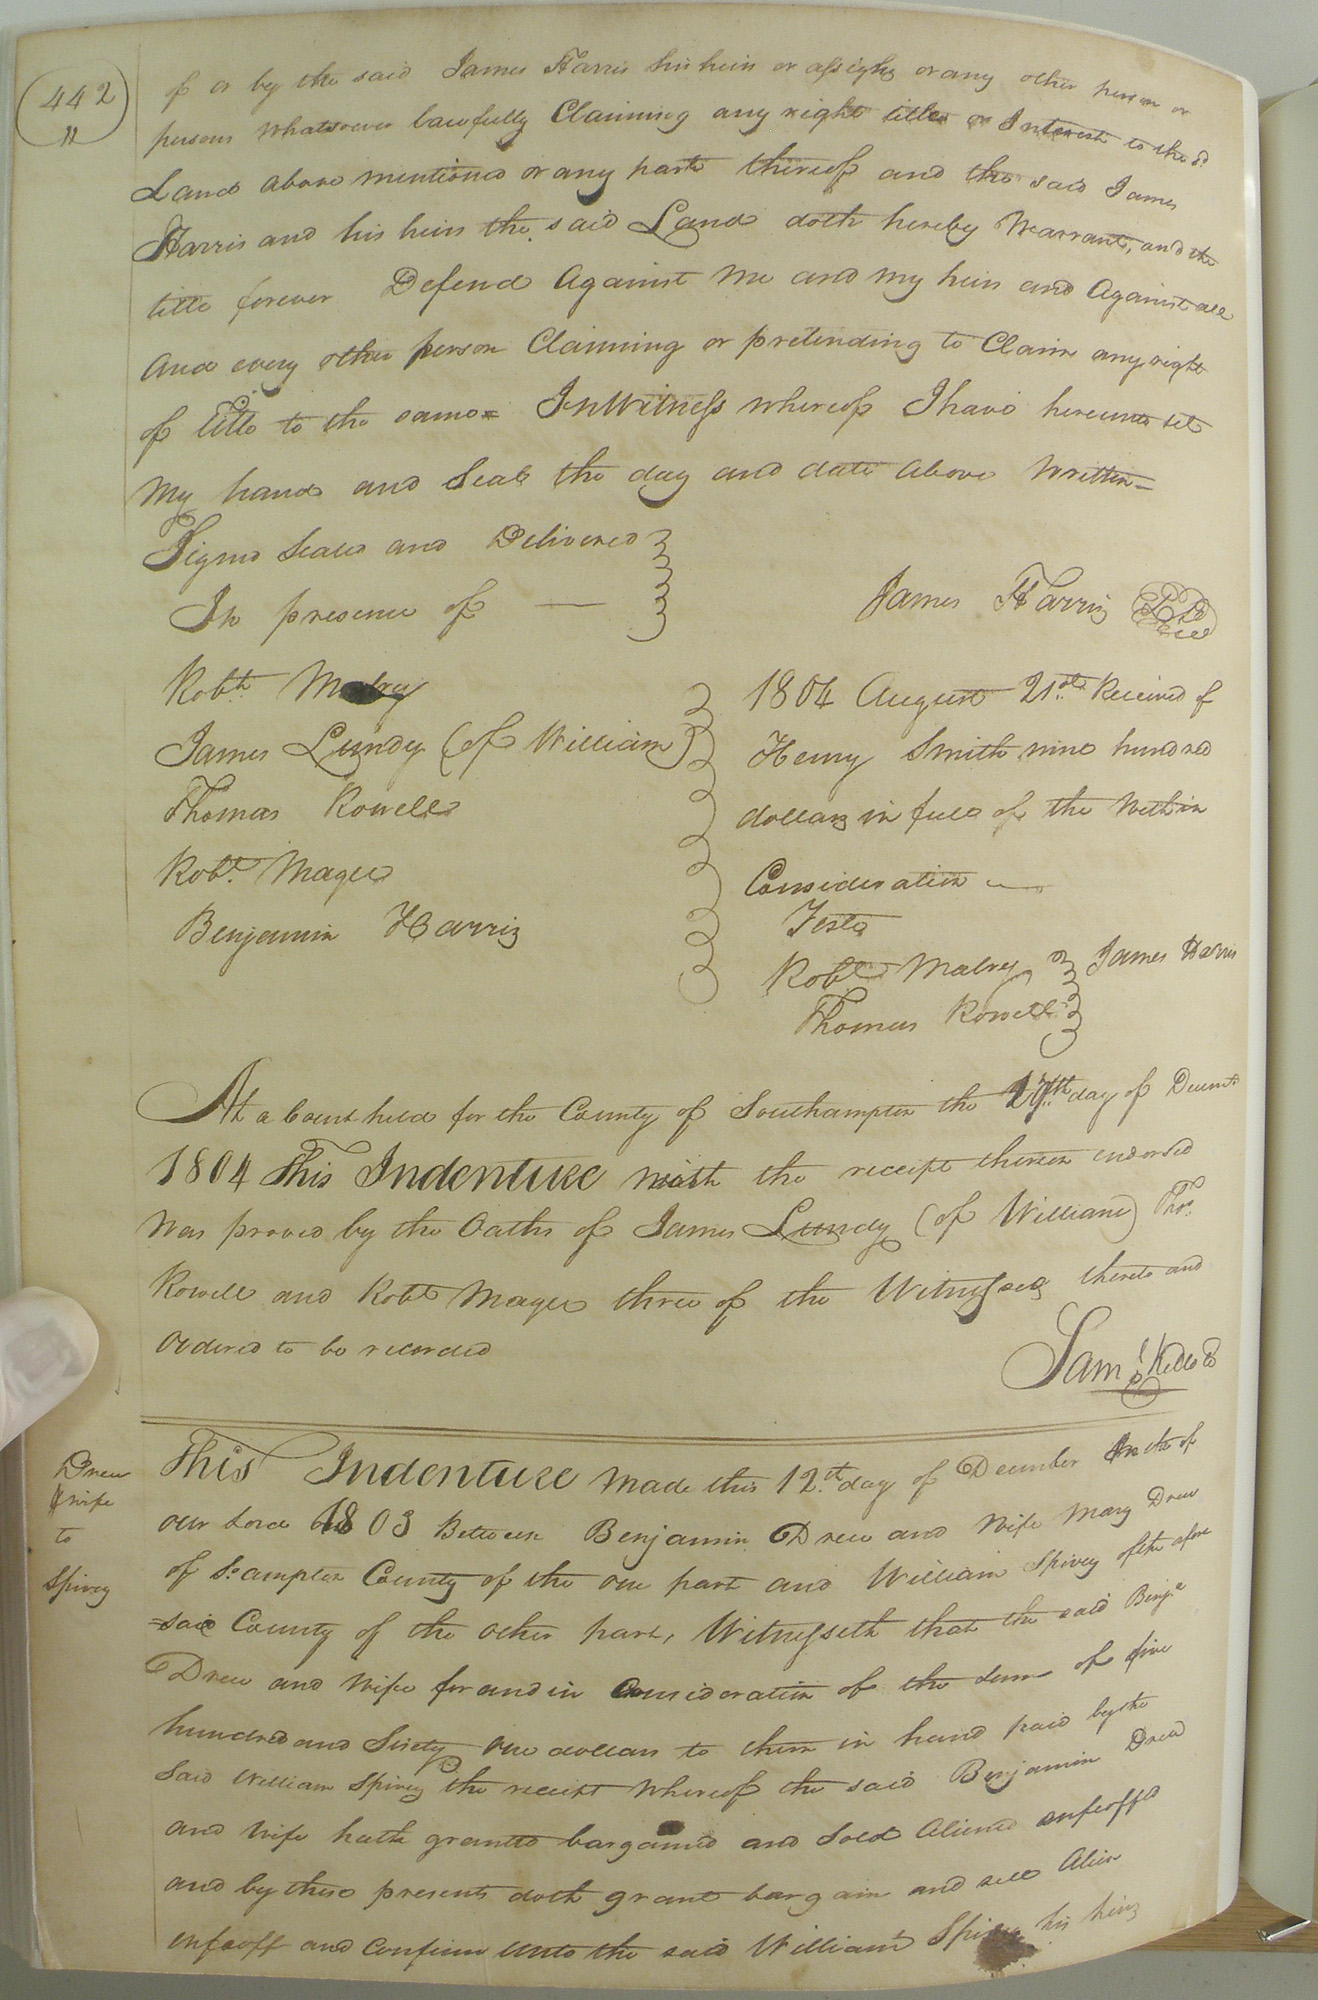 442
of or by the said James Harris his heirs or assigns or any other person or
persons whatsoever lawfully Claiming any right title or Interest to the sd
Land above mentioned or any part thereof and the said James
Harris and his heirs the said Land doth hereby Warrant, and the
title forever Defend Against me and my heirs and Against all
And every other person Claiming or pretending to Claim any right
of title to the same = In Witness whereof I have hereunto set
My hand and Seal the day and date Above Written =
Signd Seald and Delivered
In presence of —
James Harris
Robt.
James Lundy (of William)
Thomas Rowell
Robt. Magee
Benjamin Harris
1804 August 21st. Received of
Henry Smith nine hundred
dollars in full of the Within
Consideration —
Teste
Robt
Thomas Rowell
James Harris
At a Court held for the County of Southampton the day of Decemr
1804 This Indenture with the receipt thereon endorsed
Was proved by the Oaths of James Lundy (of William) Thos.
Rowell and Robt Magee three of the Witnesses thereto and
Ordered to be recorded
Saml. Kello
Drew
& wife
to
Spivey
This Indenture Made this 12.th day of December In the of
our Lord 1803 Between Benjamin Drew and Wife Mary Drew
of So.ampton County of the one part and William Spivey of the afore
=said County of the other part, Witnesseth that the said Benja
Drew and Wife for and in Consideration of the sum of five
hundred and Sixty One dollars to them in hand paid by the
Said William Spivey the receipt Whereof the said Benjamin Drew
and Wife hath granted bargained and Sold Aliened enfeoffd
and by these presents doth grant bargain and sell Alien
enfeoff and Confirm Unto the said William Spivey his heirs